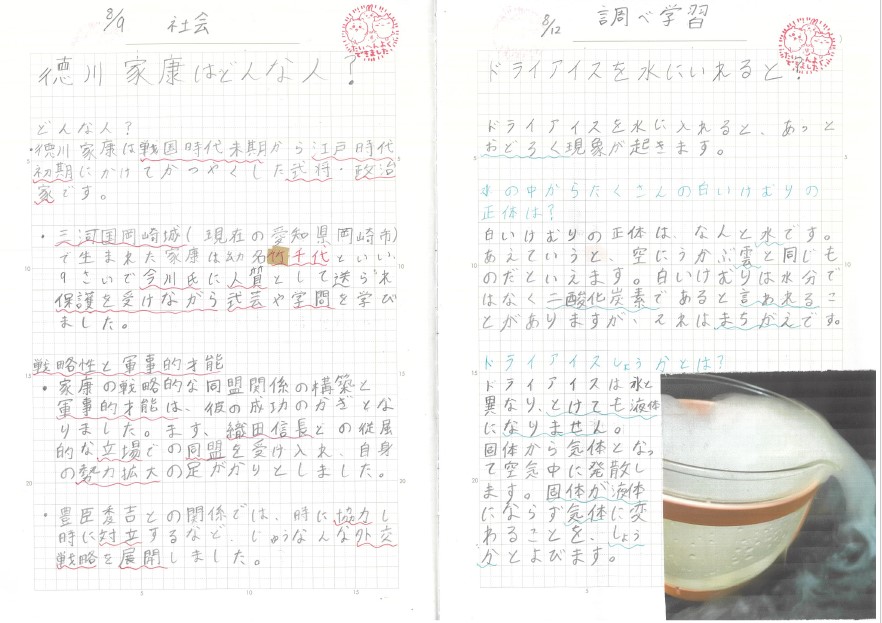 8/9 社会
徳川家康はどんな人?
どんな人?
・徳川家康は戦国時代末期から江戸時代
初期にかけてかつやくした武将・政治
家です。
・三河国岡崎城(現在の愛知県岡崎市)
で生まれた家康は幼名竹千代といい、
9さいで今川氏に人質として送られ
保護を受けながら武芸や学問を学び
ました。
戦略性と軍事的才能
・家康の戦略的な同盟関係の構築と
軍事的才能は、彼の成功のかぎとな
りました。まず、織田信長との従属
的な立場での同盟を受け入れ、自身
の勢力拡大の足がかりとしました。
・豊臣秀吉との関係では、時に協力し
時に対立するなど、じゅうなんな外交
戦略を展開しました。
たいへんよくできました
5
10
15
20
5
10
15
8/12 調べ学習
ドライアイスを水にいれると?
ドライアイスを水に入れると、あっと
おどろく現象が起きます。
水の中からたくさんの白いけむりの
正体は?
白いけむりの正体は、なんと水です。
あえていうと、空にうかぶ雲と同じも
のだといえます。白いけむりは水分で
はなく二酸化炭素であると言われるこ
とがありますが、それはまちがえです。
ドライアイスしょうかとは?
ドライアイスは水と
異なり、とけても液体
になりません。
固体から気体となっ
て空気中に発散し
ます。固体が液体
にならず気体に変
わることを、しょう
かとよびます。
たいへんよくできました
5
10
15
20
5